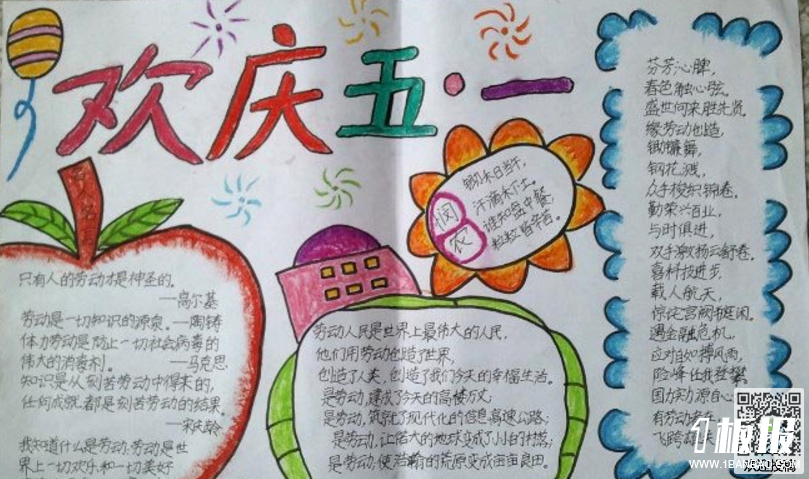 欢庆五·一
名言
只有人的劳动才是神圣的。
——高尔基
劳动是一切知识的源泉。——陶铸
体力劳动是防止一切社会病毒的
伟大的消毒剂。——马克思
知识是从刻苦劳动中得来的,
任何成就都是刻苦劳动的结果。
——宋庆龄
我知道什么是劳动:劳动是世
界上一切欢乐和一切美好
悯农
锄禾日当午,
汗滴禾下土。
谁知盘中餐,
粒粒皆辛苦。
劳动人民是世界上最伟大的人民,
他们用劳动创造了世界,
创造了人类,创造了我们今天的幸福生活。
是劳动,建成了今天的高楼万丈;
是劳动,筑就了现代化的信息高速公路;
是劳动,让偌大的地球变成了小小的村落;
是劳动,使浩瀚的荒原变成亩亩良田。
芬芳沁脾,
春色触心弦。
盛世何来胜先贤。
缘劳动创造,
锄镰舞,
钢花溅,
众手梭织锦卷。
勤荣兴百业,
与时俱进,
双手激扬云舒卷。
喜科技进步,
载人航天,
惊诧宫阙信庭闲。
遇金融危机,
应对自如搏风雨,
险峰任我登攀
国力实源自心
有劳动者在
飞跨
1板报
WWW.1BANBAO.COM
欢迎投稿